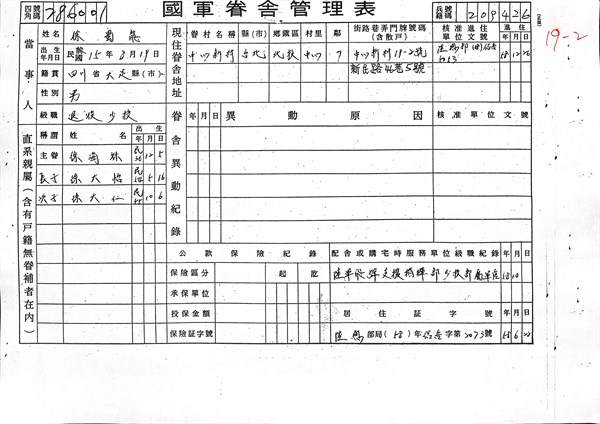 四角號碼 286001
國軍眷舍管理表
兵籍號碼 209426
19-2
當事人
姓名 徐菊
出生年月日 民國15年8月19日
籍貫 四川省大足縣(市)
性別 男
級職 退役少校
現住眷舍地址
眷村名稱 縣(市) 鄉鎮區 村里 鄰 街路巷弄門牌號碼(含散戶)
中心新村 台北 北投 中心 7 中心新村19-2號
新民路46巷5號
核准進住單位文號 進住 年 月 日
直系親屬(含有戶籍無眷補者在內)
稱謂 姓名 出生 年 月 日
主眷 徐菊 12 5
長子 徐大怡 5 16
次子 徐大仁 10 6
眷舍異動紀錄
年 月 日 異動原因 核准單位文號
公款保險紀錄
保險區分 起 訖
承保單位
投保金額
保險証字號
配舍或購宅時服務單位級職紀錄 年 月 日
58 10
居住証字號 年 月 日
部局(58)年 字第2073號 58 6